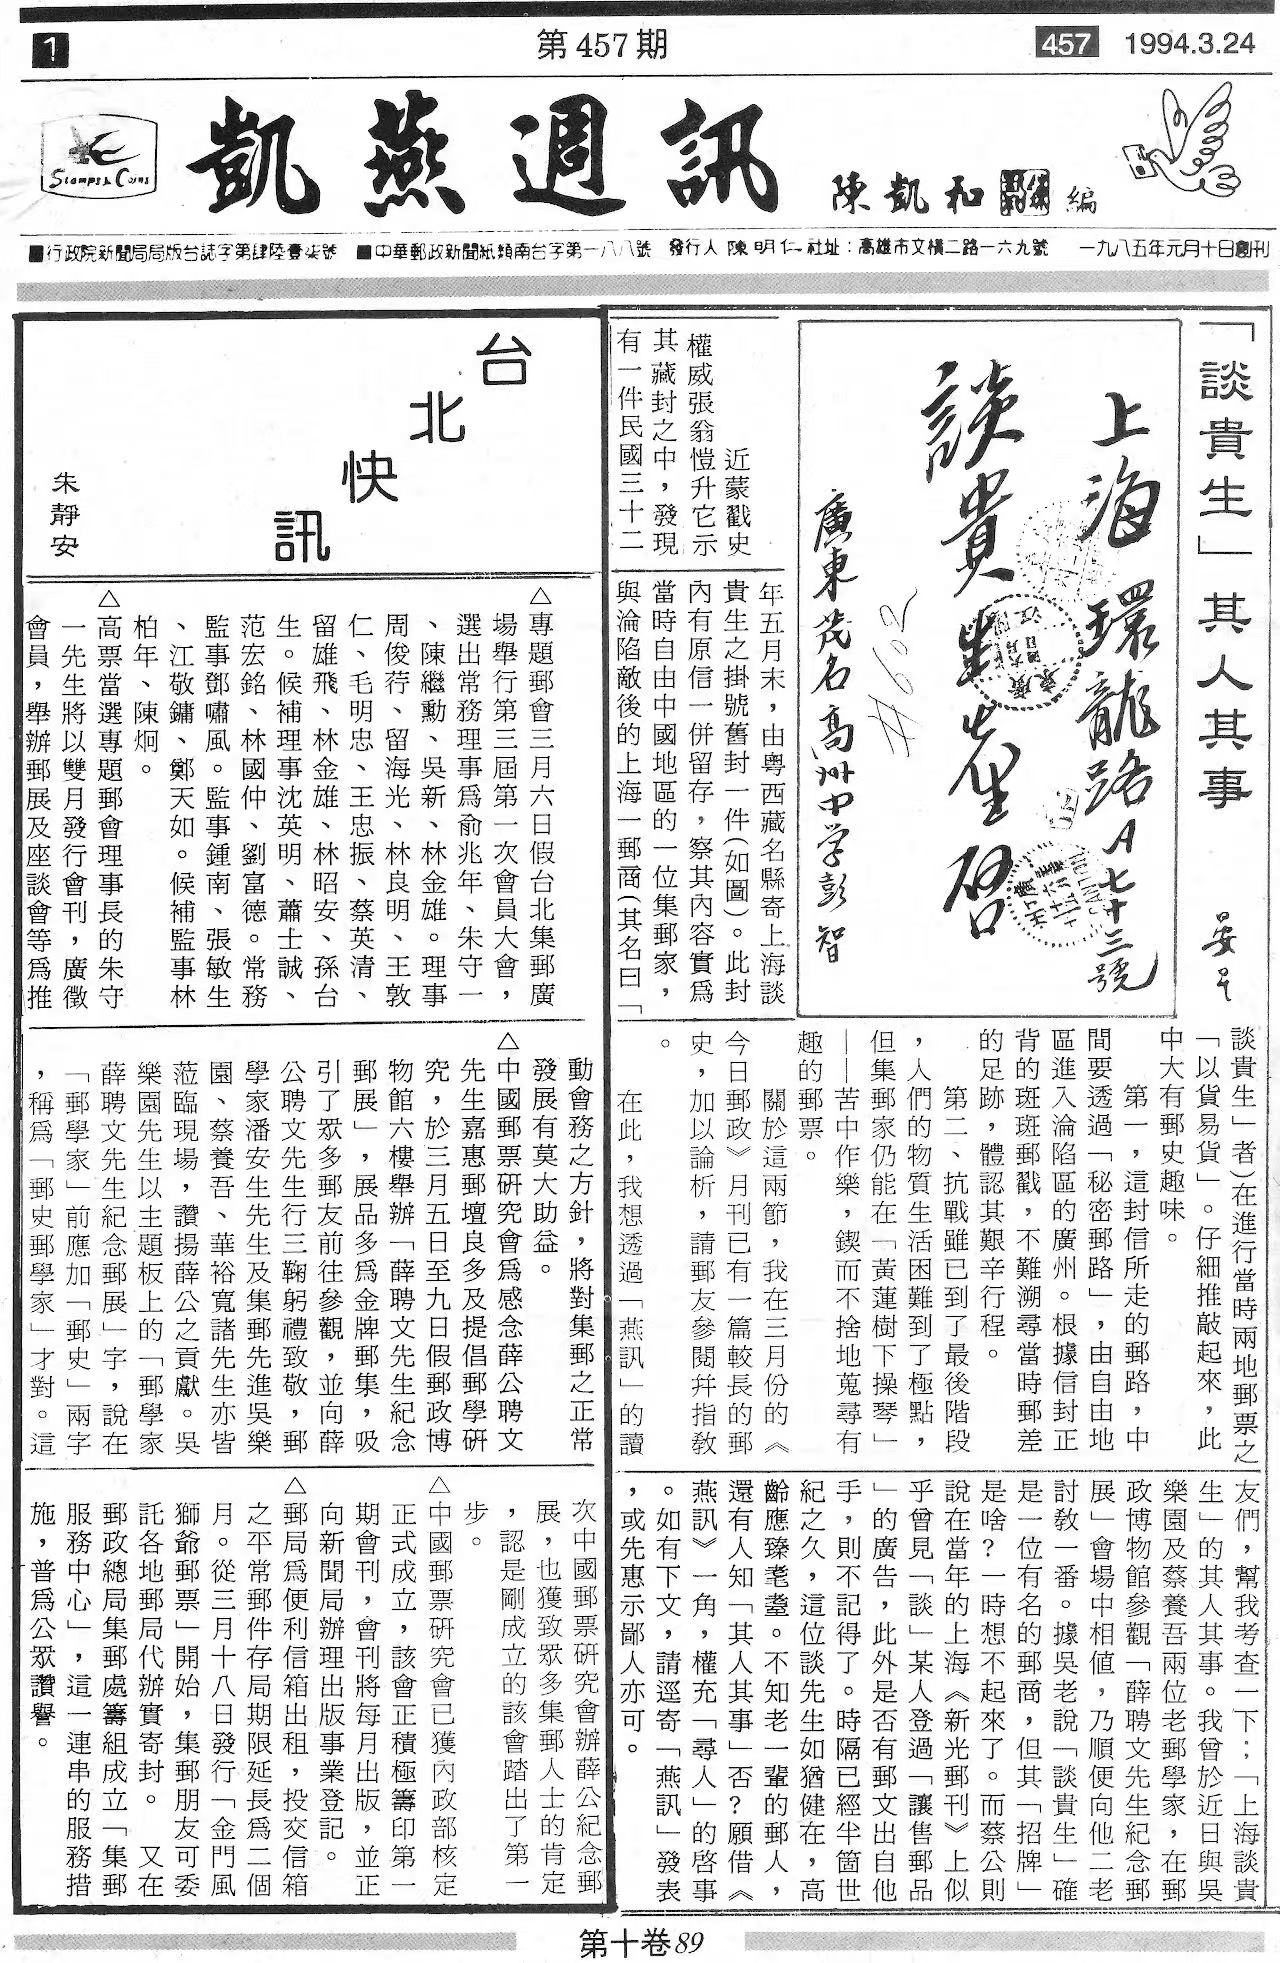 1
第457期
457 1994.3.24
Stamps & Coins
凱燕週訊
陳凱和
編
■行政院新聞局局版台誌字第肆陸壹柒號 ■中華郵政新聞紙類南台字第一八八號 發行人 陳明仁 社址：高雄市文橫二路一六九號 一九八五年元月十日創刊
「談貴生」其人其事
晏星
上海環龍路A七十三號
談貴生先生啓
#602
廣東茂名高州中学彭智
近蒙戳史
權威張翁愷升它示
其藏封之中，發現
有一件民國三十二
年五月末，由粵西藏名縣寄上海談
貴生之掛號舊封一件(如圖)。此封
內有原信一併留存，察其內容實爲
當時自由中國地區的一位集郵家，
與淪陷敵後的上海一郵商(其名曰「
談貴生」者)在進行當時兩地郵票之
「以貨易貨」。仔細推敲起來，此
中大有郵史趣味。
第一，這封信所走的郵路，中
間要透過「秘密郵路」，由自由地
區進入淪陷區的廣州。根據信封正
背的斑斑郵戳，不難溯尋當時郵差
的足跡，體認其艱辛行程。
第二、抗戰雖已到了最後階段
，人們的物質生活困難到了極點，
但集郵家仍能在「黃蓮樹下操琴」
——苦中作樂，鍥而不捨地蒐尋有
趣的郵票。
關於這兩節，我在三月份的《
今日郵政》月刊已有一篇較長的郵
史，加以論析，請郵友參閱幷指敎
。
在此，我想透過「燕訊」的讀
友們，幫我考查一下：「上海談貴
生」的其人其事。我曾於近日與吳
樂園及蔡養吾兩位老郵學家，在郵
政博物館參觀「薛聘文先生紀念郵
展」會場中相値，乃順便向他二老
討敎一番。據吳老說「談貴生」確
是一位有名的郵商，但其「招牌」
是啥？一時想不起來了。而蔡公則
說在當年的上海《新光郵刊》上似
乎曾見「談」某人登過「讓售郵品
」的廣告，此外是否有郵文出自他
手，則不記得了。時隔已經半箇世
紀之久，這位談先生如猶健在，高
齡應臻耄耋。不知老一輩的郵人，
還有人知「其人其事」否？願借《
燕訊》一角，權充「尋人」的啓事
。如有下文，請逕寄「燕訊」發表
，或先惠示鄙人亦可。
台北快訊
朱靜安
△專題郵會三月六日假台北集郵廣
場舉行第三屆第一次會員大會，
選出常務理事爲俞兆年、朱守一
、陳繼勳、吳新、林金雄。理事
周俊荇、留海光、林良明、王敦
仁、毛明忠、王忠振、蔡英清、
留雄飛、林金雄、林昭安、孫台
生。候補理事沈英明、蕭士誠、
范宏銘、林國仲、劉富德。常務
監事鄧嘯風。監事鍾南、張敏生
、江敬鏞、鄭天如。候補監事林
柏年、陳炯。
△高票當選專題郵會理事長的朱守
一先生將以雙月發行會刊，廣徵
會員，舉辦郵展及座談會等爲推
動會務之方針，將對集郵之正常
發展有莫大助益。
△中國郵票硏究會爲感念薛公聘文
先生嘉惠郵壇良多及提倡郵學硏
究，於三月五日至九日假郵政博
物館六樓舉辦「薛聘文先生紀念
郵展」，展品多爲金牌郵集，吸
引了眾多郵友前往參觀，並向薛
公聘文先生行三鞠躬禮致敬，郵
學家潘安生先生及集郵先進吳樂
園、蔡養吾、華裕寬諸先生亦皆
蒞臨現場，讚揚薛公之貢獻。吳
樂園先生以主題板上的「郵學家
薛聘文先生紀念郵展」字，說在
「郵學家」前應加「郵史」兩字
，稱爲「郵史郵學家」才對。這
次中國郵票硏究會辦薛公紀念郵
展，也獲致眾多集郵人士的肯定
，認是剛成立的該會踏出了第一
步。
△中國郵票硏究會已獲內政部核定
正式成立，該會正積極籌印第一
期會刊，會刊將每月出版，並正
向新聞局辦理出版事業登記。
△郵局爲便利信箱出租，投交信箱
之平常郵件存局期限延長爲二個
月。從三月十八日發行「金門風
獅爺郵票」開始，集郵朋友可委
託各地郵局代辦實寄封。 又在
郵政總局集郵處籌組成立「集郵
服務中心」，這一連串的服務措
施，普爲公眾讚譽。
第十卷89